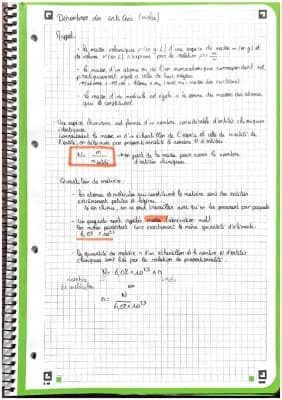 Dénombrer des entités (moles)
Rappel:
- la masse volumique ρ (en g/L) d'une espèce de masse m (en g) et
de volume V (en L) s'exprime par la relation ρ = m/V
- la masse d'un atome ou de l'ion monoatomique correspondant est
pratiquement égale à celle de leur noyau
- la masse d'une molécule est égale à la somme des masses des atomes
qui la constituent
Une espèce chimique est formée d'un nombre considérable d'entités chimiques
identiques.
Connaissant la masse m d'un échantillon de l'espèce et celle de m entité de
l'entité, on détermine par proportionnalité le nombre N d'entités
N = m / m entité → on part de la masse pour avoir le nombre
d'entités chimiques.
Quantités de matière:
- les atomes et molécules qui constituent la matière sont des entités
extrêmement petites et légères
En chimie, on ne peut travailler avec qu'en les prenant par paquets
- Un paquets sont appelés moles (abréviation mol)
Une moles possèdent tous exactement la même quantité d'éléments:
6,02 × 10^23
- la quantité de matière n d'un échantillon et le nombre N d'entités
chimiques sont liés par la relation de proportionnalité:
N = 6,02 × 10^23 × n
nombre
de molécules
mol
n = N / 6,02 × 10^23